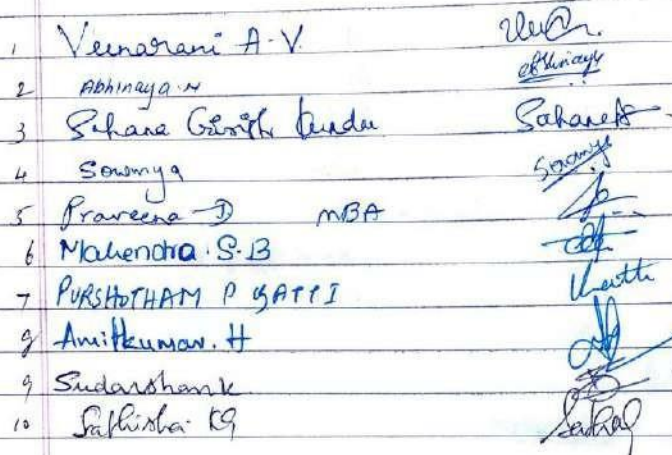 1 Veenarani A.V.
2 Abhinaya.N abhinaya
3 Sahana Girish Kundu
4 Sowmya Sowmya
5 Praveena D MBA
6 Mahendra.S.B
7 PURSHOTHAM P GATTI
8 Amitkumar.H
9 Sudarshan K
10 Sathisha KG